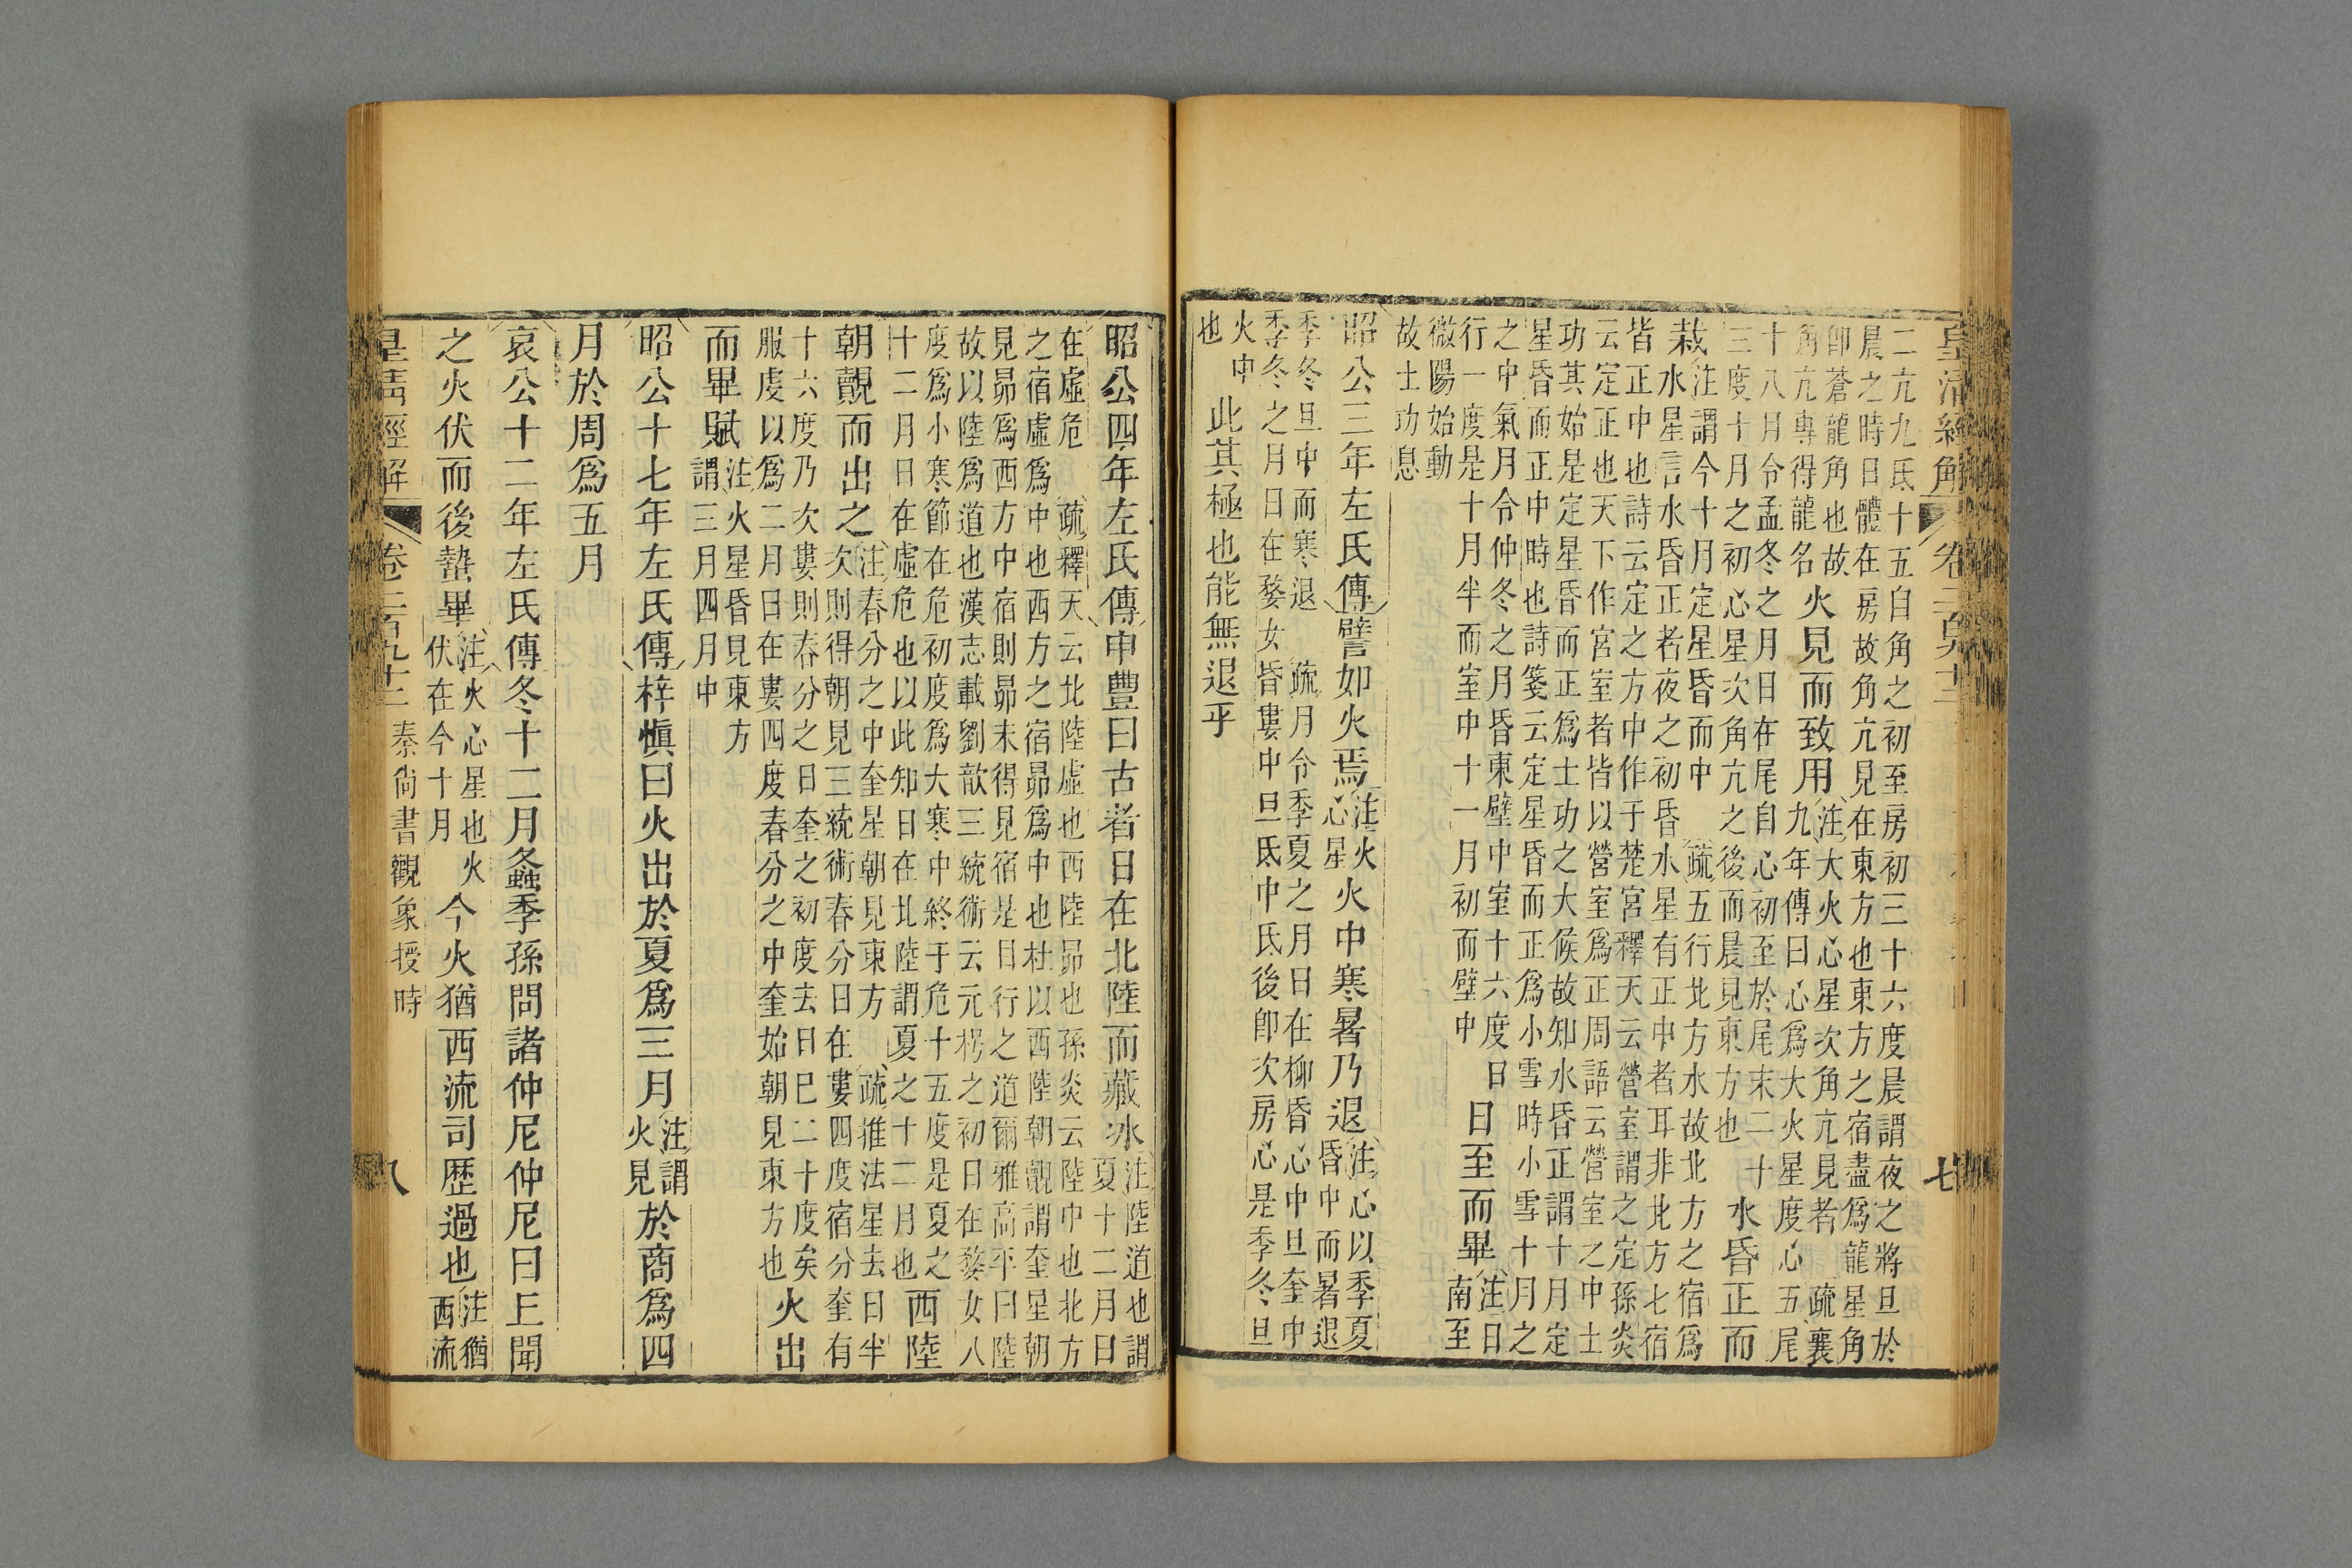 皇清經解 卷二百九十二 七
二亢九氐十五自角之初至房初三十六度晨謂夜之將旦於
晨之時日體在房故角亢見在東方也東方之宿盡爲龍星角
卽蒼龍角也故角亢專得龍名火見而致用注大火心星次角亢見者 疏襄九年傳曰心爲大火星度心五尾
十八月令孟冬之月日在尾自心初至於尾末二十三度十月之初心星次角亢之後而晨見東方也水昏正而
栽注謂今十月定星昏而中 疏五行北方水故北方之宿爲水星言水昏正者夜之初昏水星有正中者耳非北方七宿
皆正中也詩云定之方中作于楚宮釋天云營室謂之定孫炎
云定正也天下作宮室者皆以營室爲正周語云營室之中土
功其始是定星昏而正爲土功之大候故知水昏正謂十月定
星昏而正中時也詩箋云定星昏而正爲小雪時小雪十月之
之中氣月令仲冬之月昏東壁中室十六度日行一度是十月半而室中十一月初而壁中日至而畢注日南至
微陽始動
故土功息
昭公三年左氏傳譬如火焉注火心星火中寒暑乃退注心以季夏昏中而暑退
季冬旦中而寒退 疏月令季夏之月日在柳昏心中旦奎中
季冬之月日在婺女昏婁中旦氐中氐後卽次房心是季冬旦
火中也此其極也能無退乎
昭公四年左氏傳申豐曰古者日在北陸而藏冰注陸道也謂夏十二月日
在虛危 疏釋天云北陸虛也西陸昴也孫炎云陸中也北方
之宿虛爲中也西方之宿昴爲中也杜以西陸朝覿謂奎星朝
見昴爲西方中宿則昴未得見宿是日行之道爾雅高平曰陸
故以陸爲道也漢志載劉歆三統術云元枵之初日在婺女八
度爲小寒節在危初度爲大寒中終于危十五度是夏之十二月日在虛危也以此知日在北陸謂夏之十二月也西陸
朝覿而出之注春分之中奎星朝見東方 疏推法星去日半次則得朝見三統術春分日在婁四度宿分奎有
十六度乃次婁則春分之日奎之初度去日已二十度矣服虔以爲二月日在婁四度春分之中奎始朝見東方也火出
而畢賦注火星昏見東方謂三月四月中
昭公十七年左氏傳梓慎曰火出於夏爲三月注謂火見於商爲四
月於周爲五月
哀公十二年左氏傳冬十二月螽季孫問諸仲尼仲尼曰上聞
之火伏而後蟄畢注火心星也火伏在今十月今火猶西流司歷過也注猶西流
皇清經解 卷二百九十二 秦尙書觀象授時 八